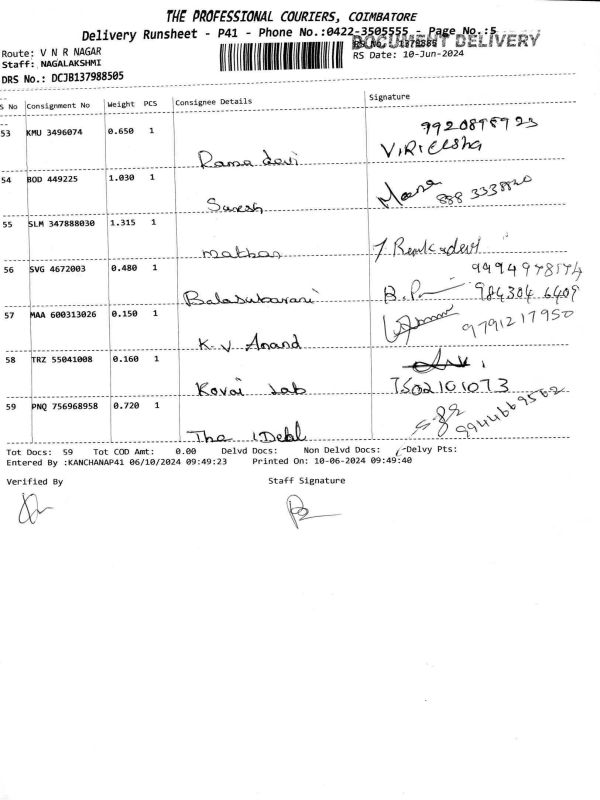 THE PROFESSIONAL COURIERS, COIMBATORE
Delivery Runsheet - P41 - Phone No.:0422-3505555 - Page No.:5
DOCUMENT DELIVERY
Route: V N R NAGAR
Staff: NAGALAKSHMI
RS Date: 10-Jun-2024
DRS No.: DCJB137988505
S No Consignment No Weight PCS Consignee Details Signature
53 KMU 3496074 0.650 1
Rama devi
54 BOD 449225 1.030 1
Suresh
55 SLM 347888030 1.315 1
56 SVG 4672003 0.480 1
984304 6409
57 MAA 600313026 0.150 1
9791217950
K. V Anand
58 TRZ 55041008 0.160 1
Kovai Lab
7502101073
59 PNQ 756968958 0.720 1
9944669562
The
Tot Docs: 59 Tot COD Amt: 0.00 Delvd Docs: Non Delvd Docs: Delvy Pts:
Entered By :KANCHANAP41 06/10/2024 09:49:23 Printed On: 10-06-2024 09:49:40
Verified By Staff Signature